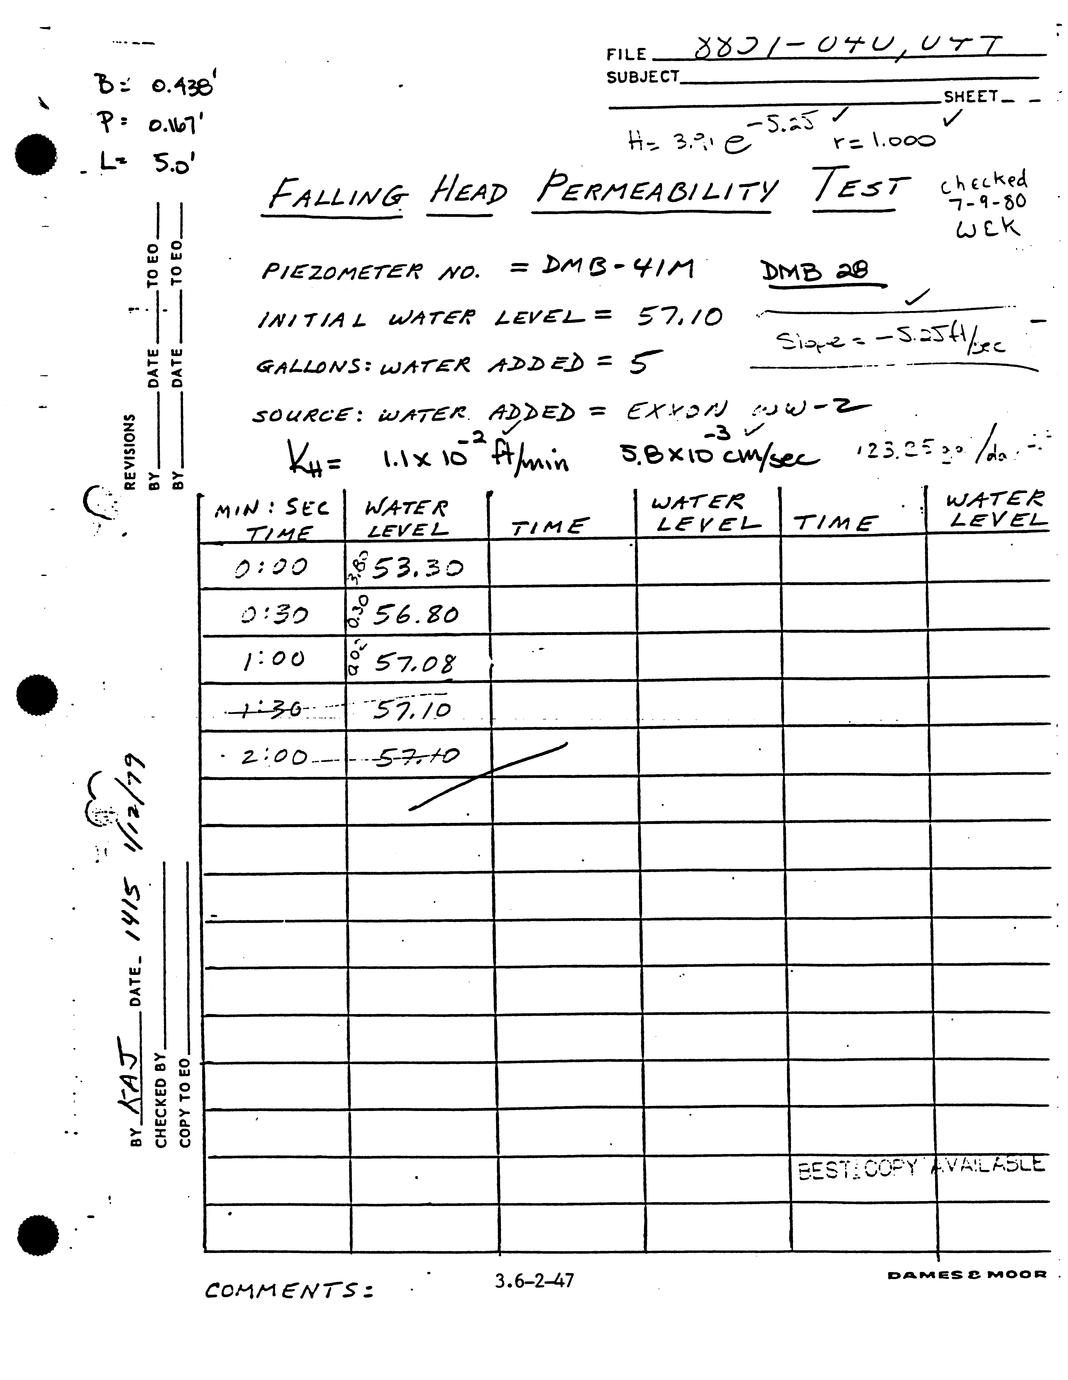 FILE 8821-040, 047
B= 0.438'
SUBJECT
P= 0.167'
SHEET
L= 5.0'
H= 3.91 e^-5.25 ✓ r=1.000 ✓
FALLING HEAD PERMEABILITY TEST
checked
7-9-80
WEK
PIEZOMETER NO. = DMB-41M DMB 28
INITIAL WATER LEVEL = 57.10
Slope = -5.25 ft/sec ✓
GALLONS: WATER ADDED = 5
SOURCE: WATER ADDED = EXXON WW-2
KH= 1.1 x 10^-2 ft/min ✓ 5.8 x 10^-3 cm/sec ✓
REVISIONS
BY DATE TO EO
BY DATE TO EO
MIN : SEC TIME WATER LEVEL TIME WATER LEVEL TIME WATER LEVEL
0:00 3.80 53.30
0:30 0.30 56.80
1:00 0.02 57.08
1:30 57.10
2:00 57.10
BY KAJ DATE 1415 1/12/79
CHECKED BY
COPY TO EO
BEST COPY AVAILABLE
COMMENTS:
3.6-2-47
DAMES & MOOR